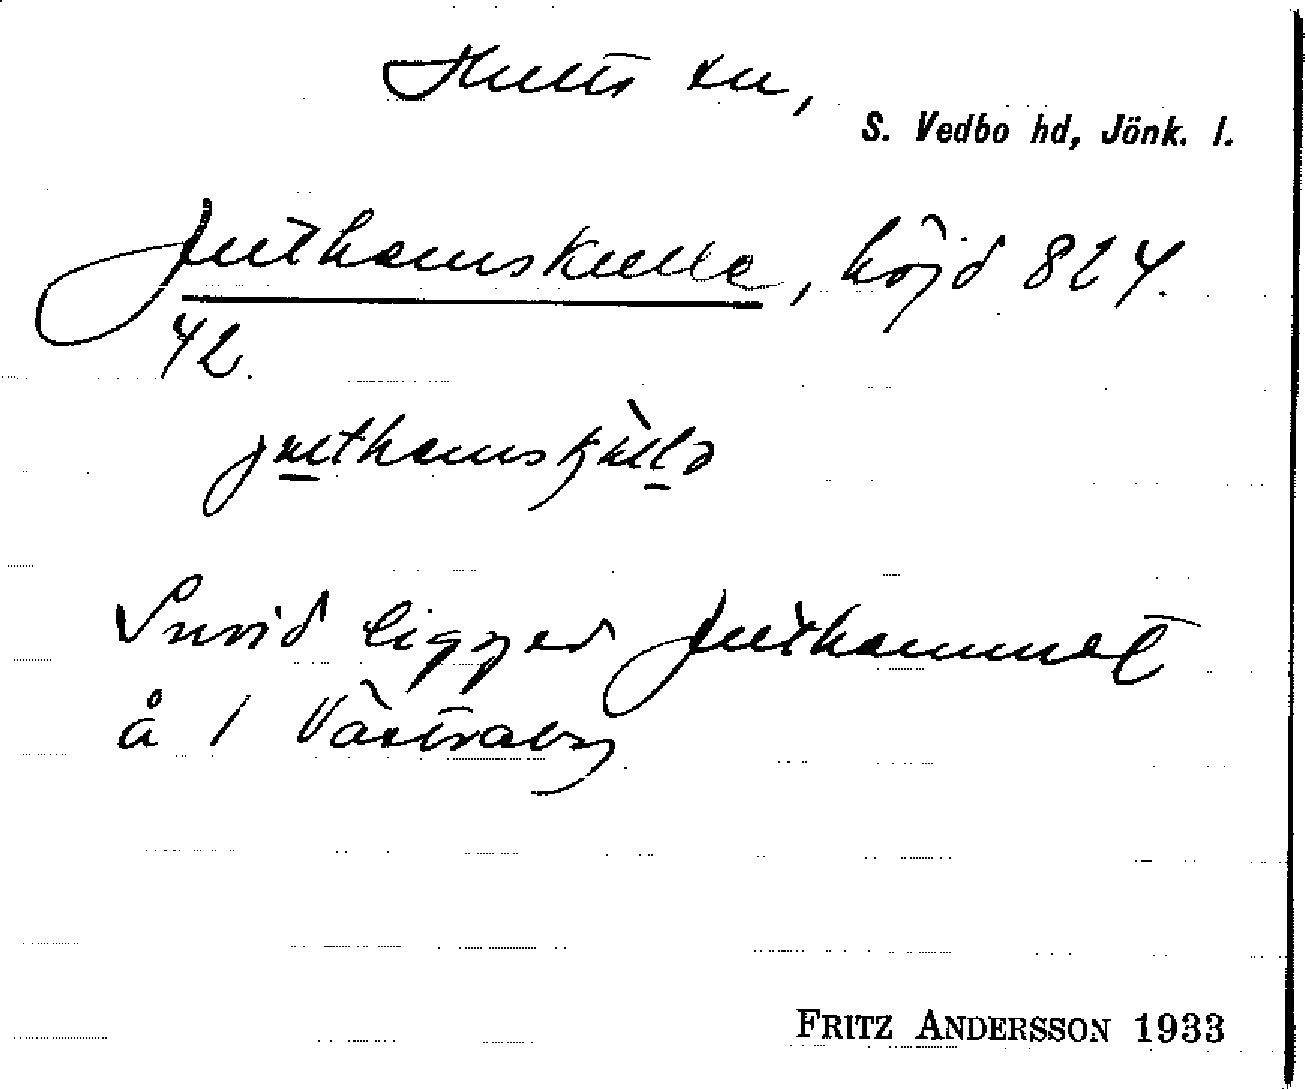 Hults sn,
S. Vedbo hd, Jönk. l.
Juthamskulle, höjd 824.
42.
juthamskulə
Invid ligger Juthammet
å 1 Västraby
FRITZ ANDERSSON 1933